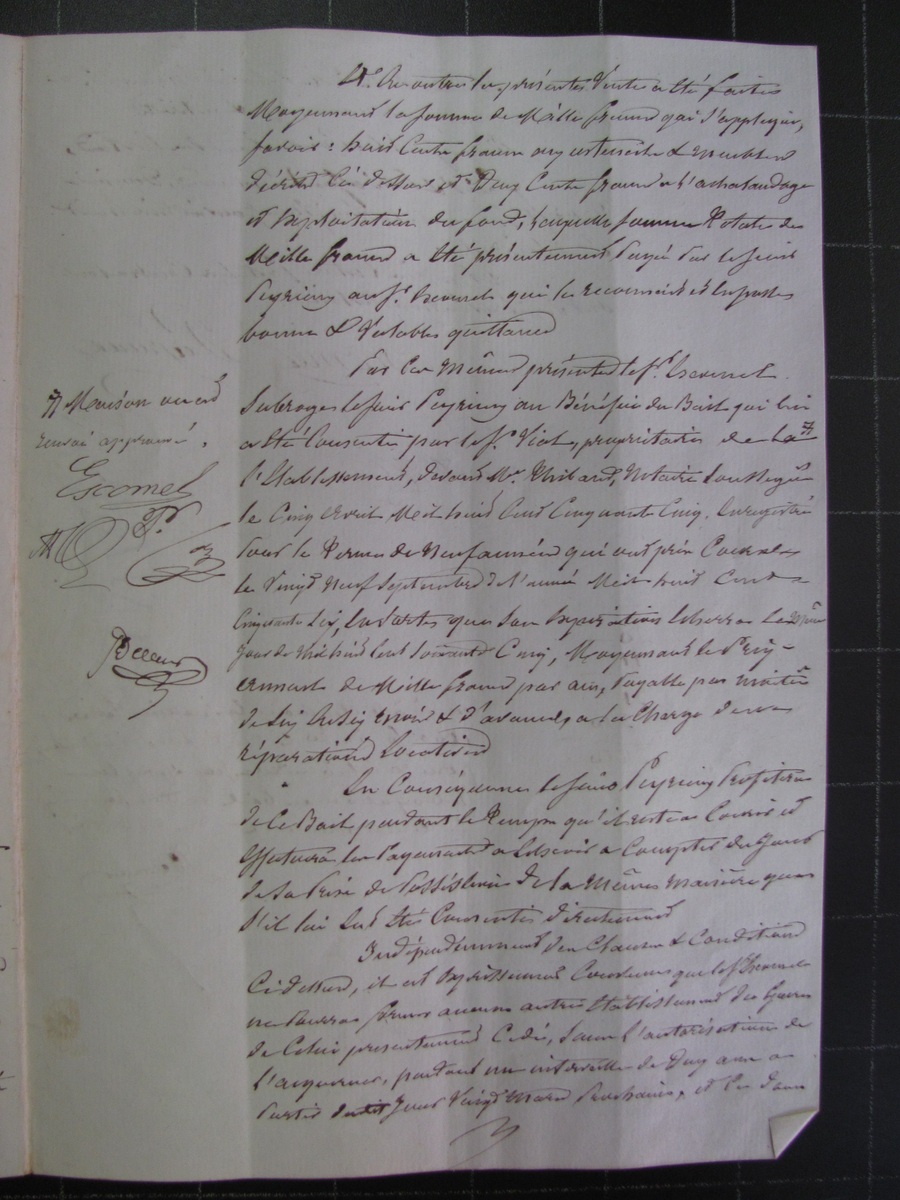 Et en outre la présente Vente a été faite
Moyennant la somme de Mille francs qui s'applique,
savoir : huit Cents francs aux ustensiles & meubles
décrits Ci dessus et Deux Cents francs à l'achalandage
et Exploitation du fond, Laquelle somme Totale de
Mille francs a été présentement payé par le sieur
Peyrieux au Sr. Escomel qui le reconnait et en passe
bonne & Valable quittance
Par ces Mêmes présentes le Sr. Escomel
Subroge le sieur Peyrieux au Bénéfice du Bail qui lui
a été Consenti par le Sr. Viol, propriétaire de La
l'Etablissement, devant Me. Thibaud, Notaire soussigné
le Cinq Avril Mil huit Cent Cinquante Cinq, Enregistré
pour le Terme de Neuf années qui ont pris Cours le
le Vingt Neuf Septembre de l'année Mil huit Cent
Cinquante Six, En sorte que son Expiration écherra Le même
jour de Mil huit Cent soixante Cinq, Moyennant le Prix
annuel de Mille francs par an, payable par moitié
de Six En Six mois & d'avance, à la Charge de
réparations Locatives
En Conséquence le sieur Peyrieux Profitera
de Ce Bail pendant le Temps qu'il reste à Courir et
Effectuera les Payements à Echoir à Compter du Jour
de sa Prise de Possession de la Même Manière que
S'il lui eut été Consentis directement
Indépendamment des Clauses & Conditions
Ci dessus, il est Expressément Convenu que le Sr Escomel
ne Pourra former aucun autre Etablissement du Genre
de Celui présentement Cédé, sans l'autorisation de
l'acquéreur, pendant un intervalle de Dix ans à
Partir dudit Jour Vingt Mars Prochain, et Ce dans
Maison
renvoi approuvé.
Escomel